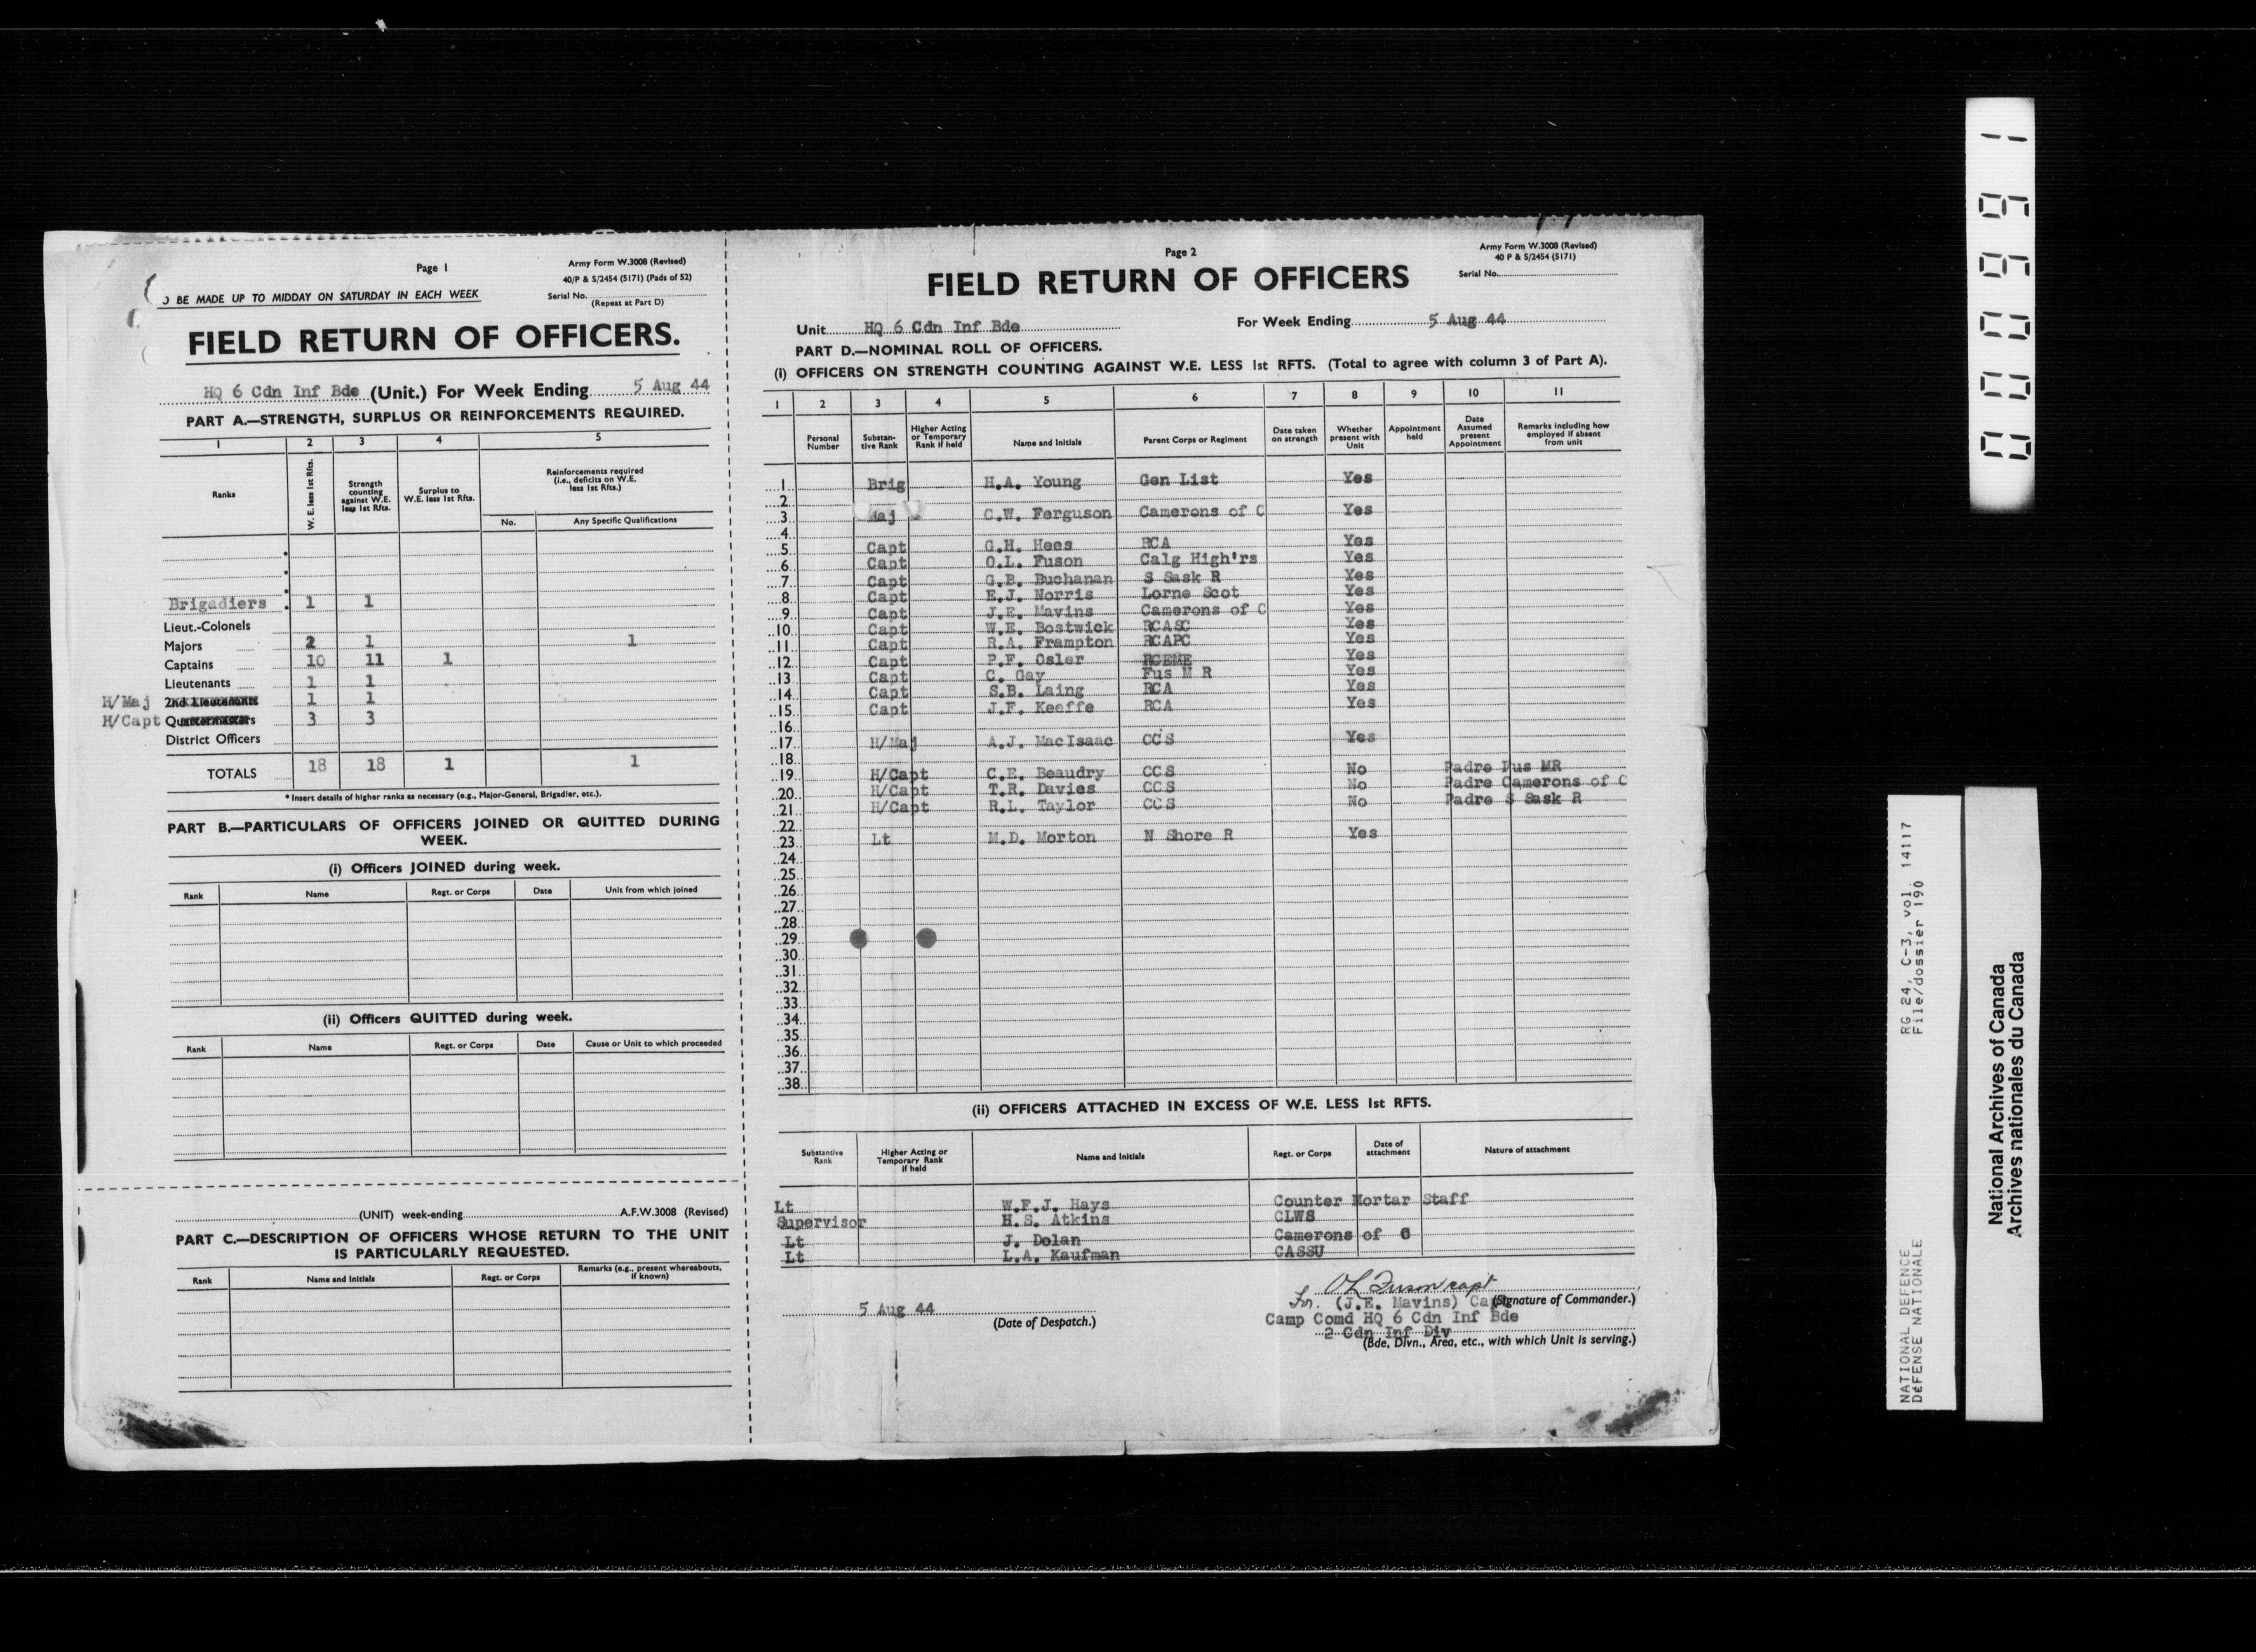 Page 1
Army Form W.3008 (Revised)
40/P & S/2454 (5171) (Pads of 52)
Serial No.
(Repeat at Part D)
O BE MADE UP TO MIDDAY ON SATURDAY IN EACH WEEK
FIELD RETURN OF OFFICERS.
HQ 6 Cdn Inf Bde (Unit.) For Week Ending 5 Aug 44
PART A.—STRENGTH, SURPLUS OR REINFORCEMENTS REQUIRED.
1 2 3 4 5
Ranks
W. E. less 1st Rfts.
Strength counting against W.E. less 1st Rfts.
Surplus to W.E. less 1st Rfts.
Reinforcements required (i.e., deficits on W.E. less 1st Rfts.)
No. Any Specific Qualifications
Brigadiers 1 1
Lieut.-Colonels
Majors 2 1 1
Captains 10 11 1
Lieutenants 1 1
H/Maj 2nd Lieutenants 1 1
H/Capt Quartermasters 3 3
District Officers
TOTALS 18 18 1 1
* Insert details of higher ranks as necessary (e.g., Major-General, Brigadier, etc.).
PART B.—PARTICULARS OF OFFICERS JOINED OR QUITTED DURING
WEEK.
(i) Officers JOINED during week.
Rank Name Regt. or Corps Date Unit from which joined
(ii) Officers QUITTED during week.
Rank Name Regt. or Corps Date Cause or Unit to which proceeded
(UNIT) week-ending A.F.W.3008 (Revised)
PART C.—DESCRIPTION OF OFFICERS WHOSE RETURN TO THE UNIT
IS PARTICULARLY REQUESTED.
Rank Name and Initials Regt. or Corps Remarks (e.g., present whereabouts, if known)
Page 2
Army Form W.3008 (Revised)
40 P & S/2454 (5171)
Serial No.
FIELD RETURN OF OFFICERS
Unit HQ 6 Cdn Inf Bde For Week Ending 5 Aug 44
PART D.—NOMINAL ROLL OF OFFICERS.
(i) OFFICERS ON STRENGTH COUNTING AGAINST W.E. LESS 1st RFTS. (Total to agree with column 3 of Part A).
1 2 3 4 5 6 7 8 9 10 11
Personal Number
Substan-tive Rank
Higher Acting or Temporary Rank if held
Name and Initials
Parent Corps or Regiment
Date taken on strength
Whether present with Unit
Appointment held
Date Assumed present Appointment
Remarks including how employed if absent from unit
1 Brig H.A. Young Gen List Yes
2
3 Maj C.W. Ferguson Camerons of C Yes
4
5 Capt G.H. Hees RCA Yes
6 Capt O.L. Fuson Calg High'rs Yes
7 Capt G.B. Buchanan S Sask R Yes
8 Capt E.J. Norris Lorne Scot Yes
9 Capt J.E. Mavins Camerons of C Yes
10 Capt W.E. Bostwick RCASC Yes
11 Capt R.A. Frampton RCAPC Yes
12 Capt P.F. Osler RCEME Yes
13 Capt C. Gay Fus M R Yes
14 Capt S.B. Laing RCA Yes
15 Capt J.F. Keeffe RCA Yes
16
17 H/Maj A.J. MacIsaac CCS Yes
18
19 H/Capt C.E. Beaudry CCS No Padre Fus MR
20 H/Capt T.R. Davies CCS No Padre Camerons of C
21 H/Capt R.L. Taylor CCS No Padre S Sask R
22
23 Lt M.D. Morton N Shore R Yes
24
25
26
27
28
29
30
31
32
33
34
35
36
37
38
(ii) OFFICERS ATTACHED IN EXCESS OF W.E. LESS 1st RFTS.
Substantive Rank
Higher Acting or Temporary Rank if held
Name and Initials
Regt. or Corps
Date of attachment
Nature of attachment
Lt W.F.J. Hays Counter Mortar Staff
Supervisor H.S. Atkins CLWS
Lt J. Dolan Camerons of C
Lt L.A. Kaufman CASSU
OL Fuson capt
5 Aug 44
(Date of Despatch.)
For. (J.E. Mavins) Capt (Signature of Commander.)
Camp Comd HQ 6 Cdn Inf Bde
2 Cdn Inf Div
(Bde, Divn., Area, etc., with which Unit is serving.)
000991
RG 24, C-3, vol. 14117
File/dossier 190
NATIONAL DEFENCE
DÉFENSE NATIONALE
National Archives of Canada
Archives nationales du Canada